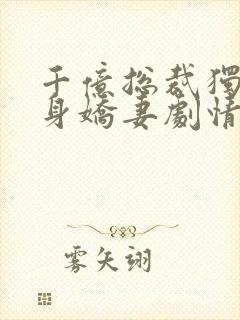 千億總裁獨
身嬌妻劇情
雾矢翊